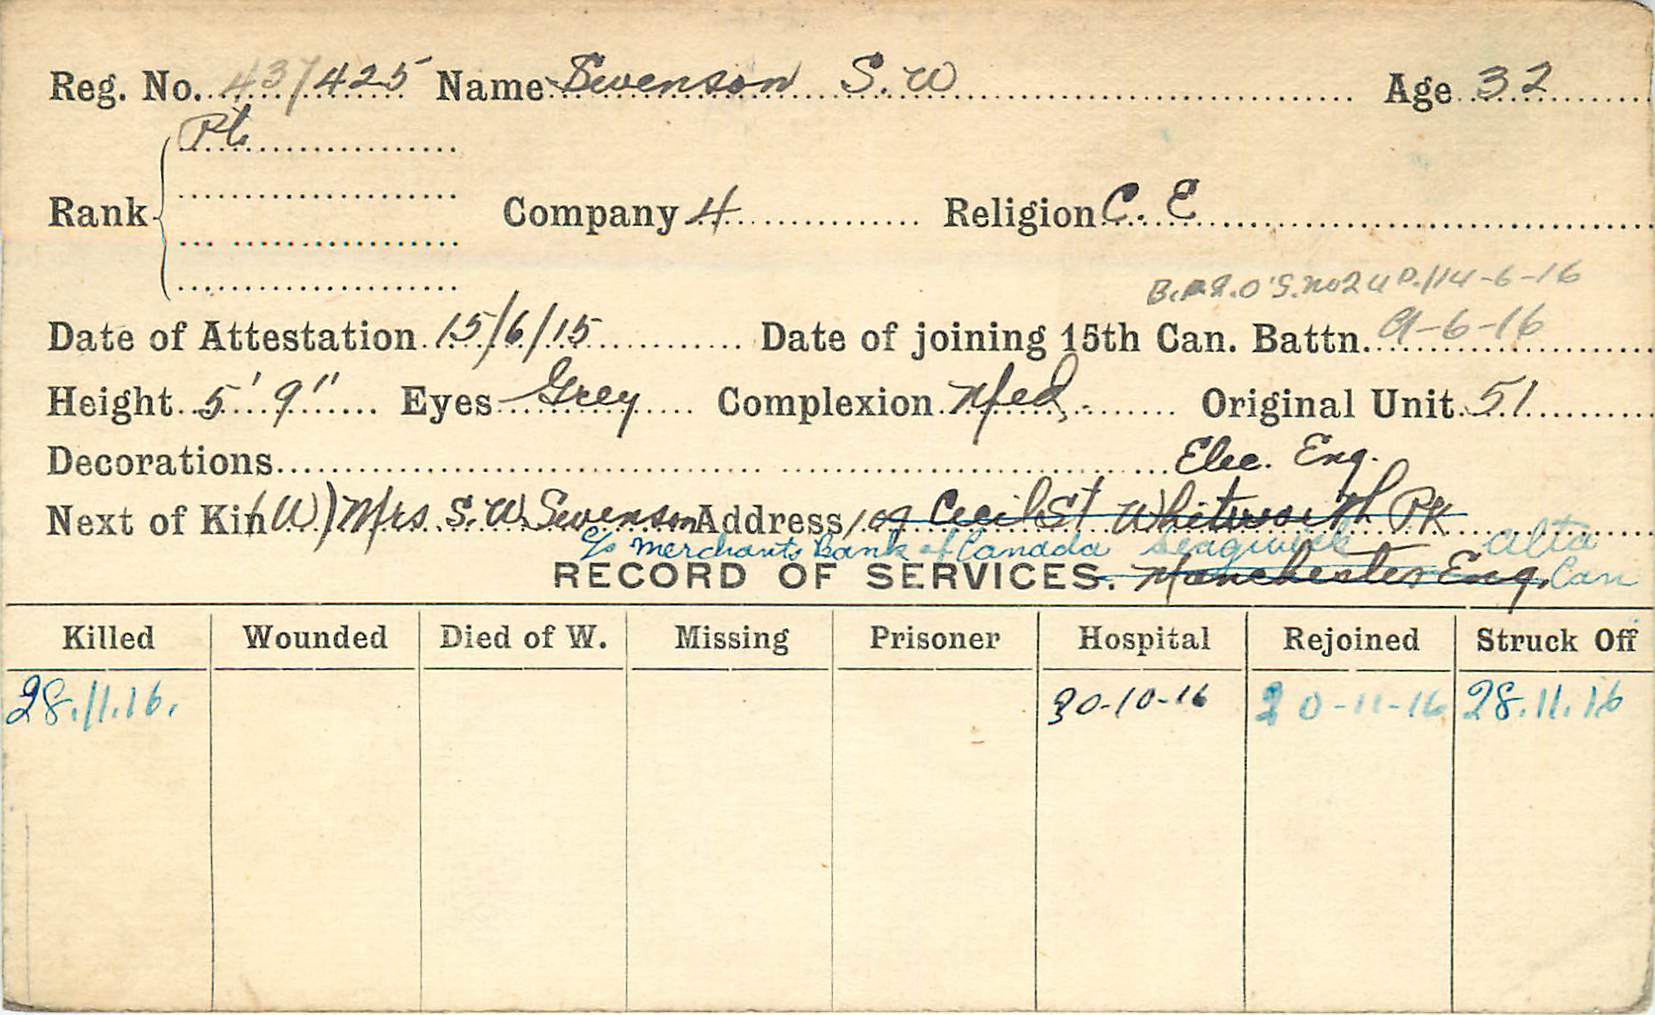 Reg. No. 437425 Name Swenson S. W Age 32
Pte
Rank Company 4 Religion C. E
No 24 D./14-6-16
Date of Attestation 15/6/15 Date of joining 15th Can. Battn. 9-6-16
Height 5' 9" Eyes Grey Complexion Med. Original Unit 51
Decorations Elec. Eng.
Next of Kin (W) Mrs. S. W. Swenson Address 109 Cecil St Whitworth PK
c/o Merchants Bank of Canada Sedgwick Alta
RECORD OF SERVICES. Manchester Eng. Can
Killed Wounded Died of W. Missing Prisoner Hospital Rejoined Struck Off
28.11.16. 30-10-16 20-11-16 28.11.16